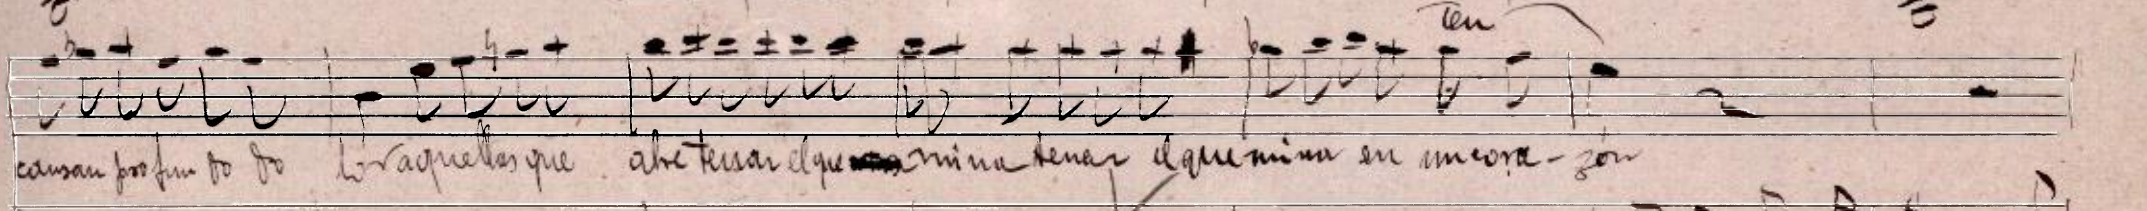 ten
causan profun do do lor aquellas que ate tenar el que mina tenar el que mina en un cora - zón